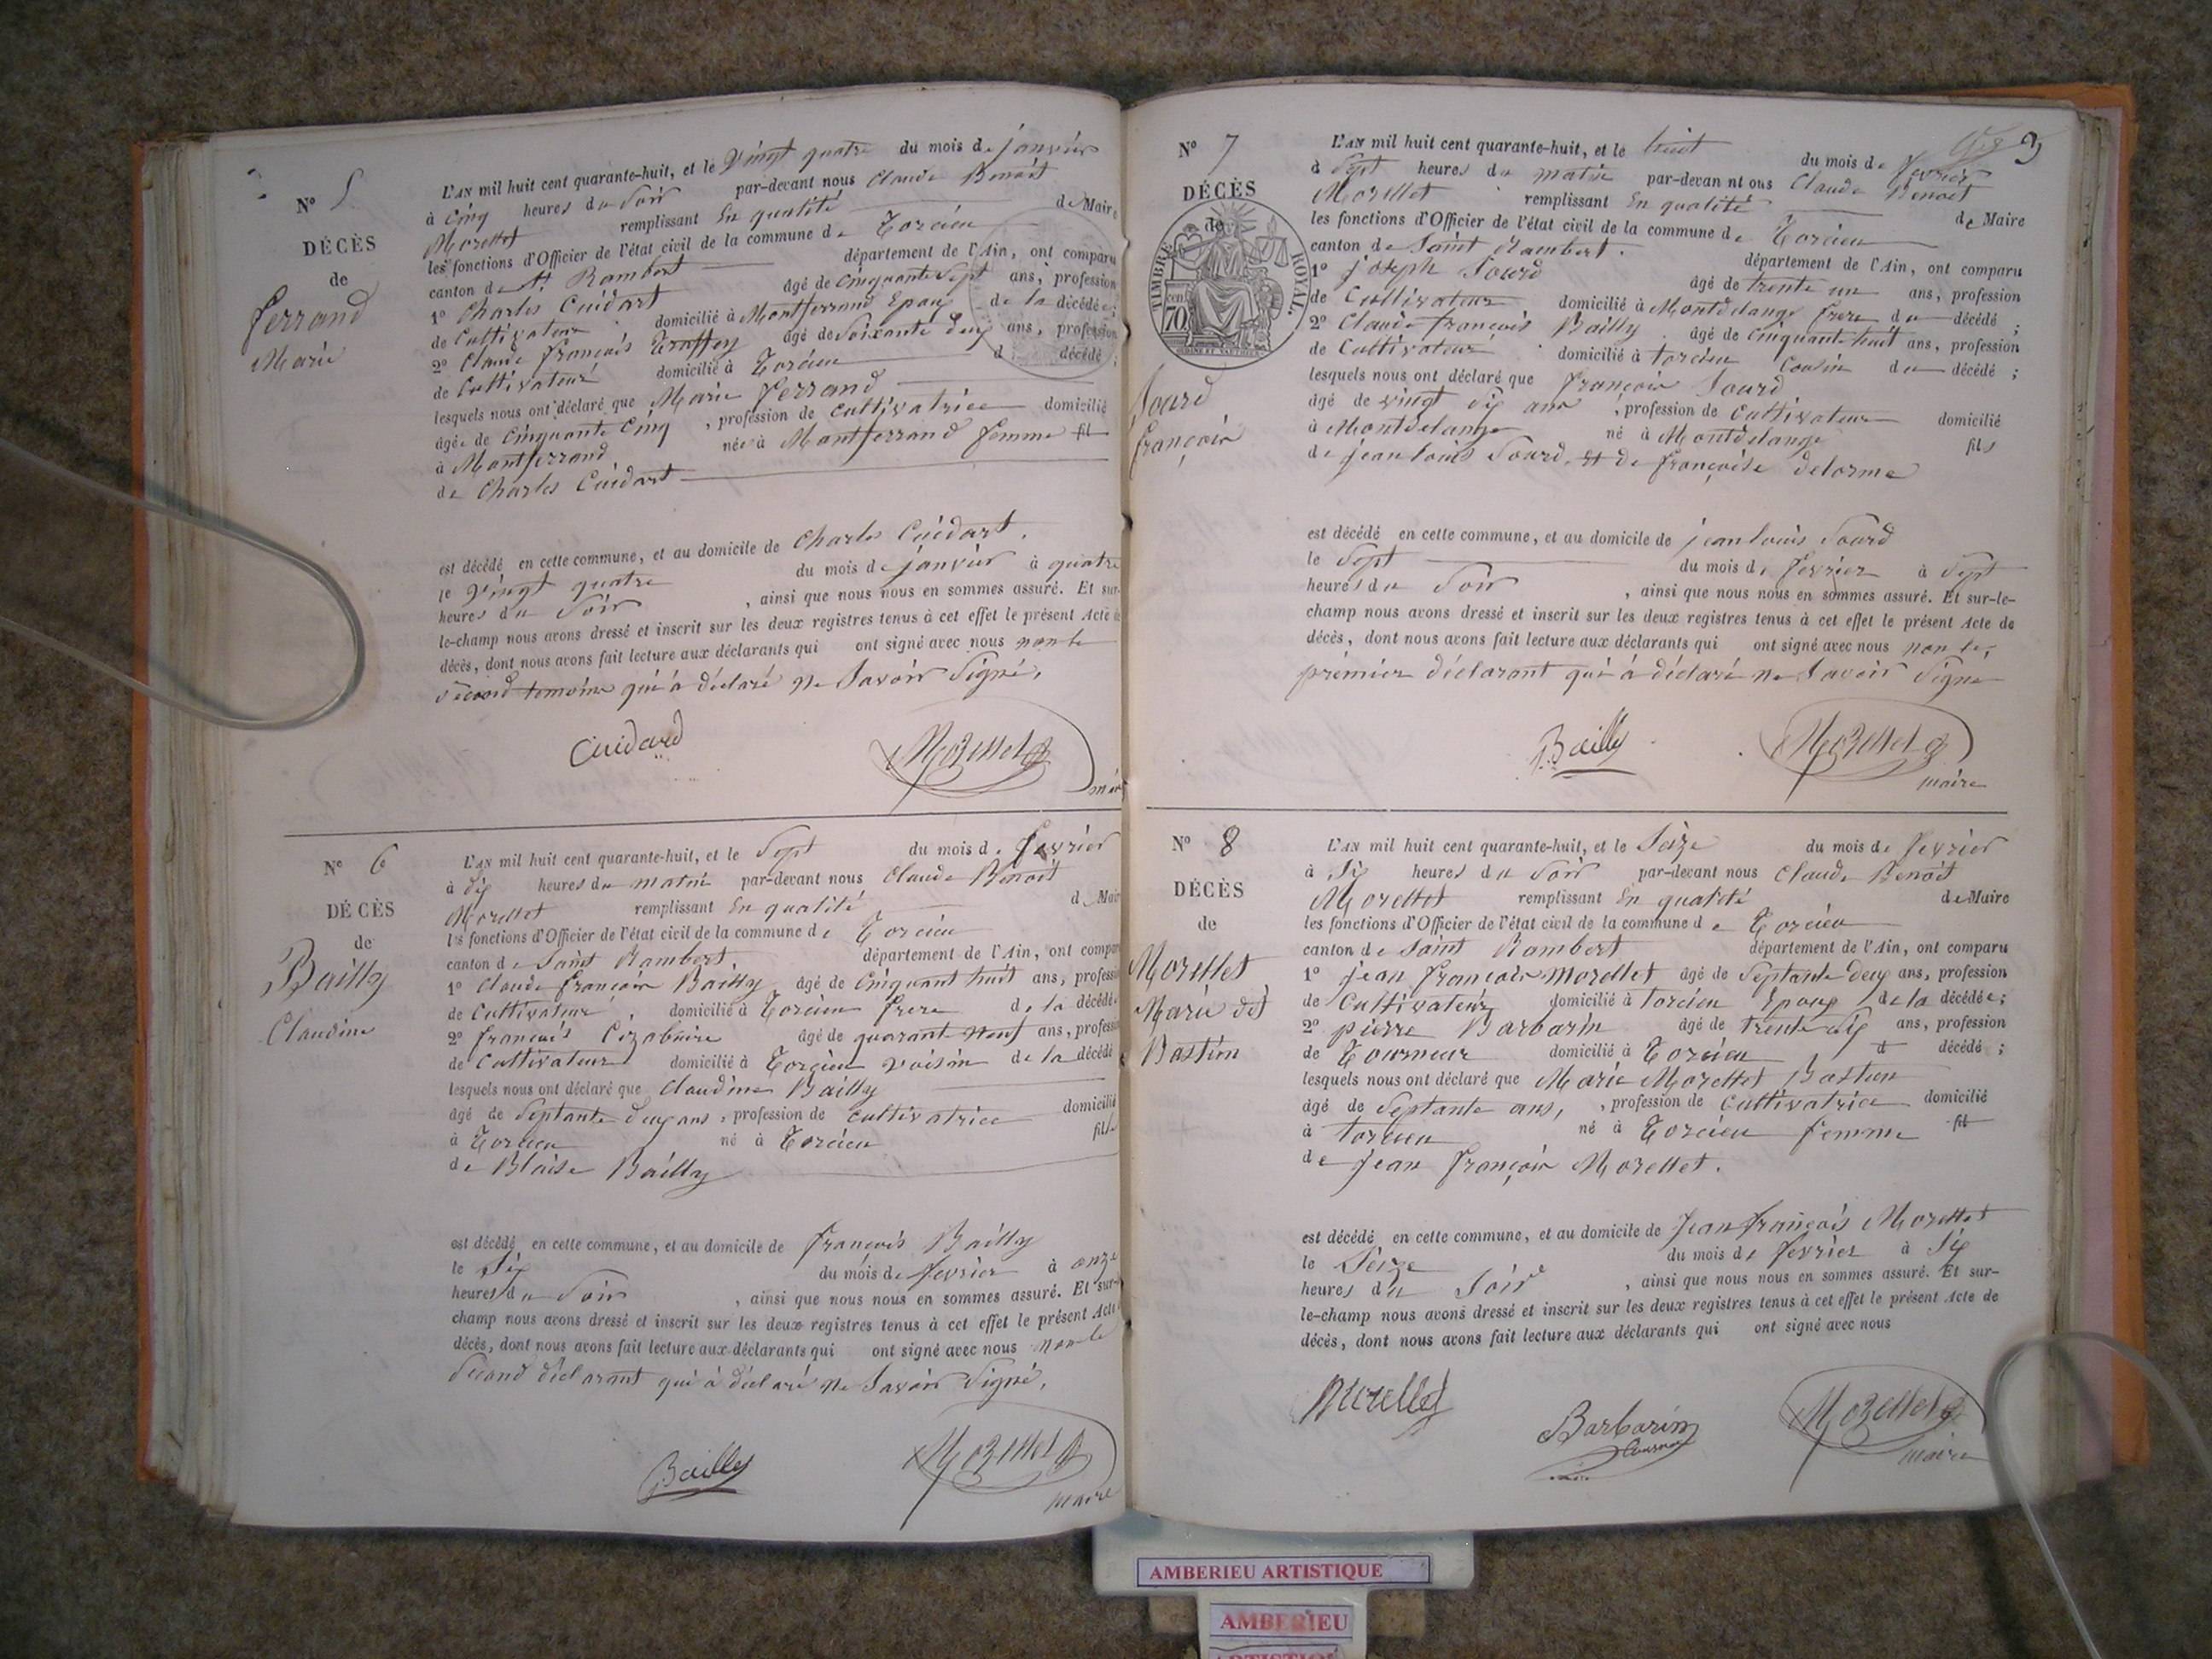 N° 5
DÉCÈS
de
Ferrand
Marie
L'AN mil huit cent quarante-huit, et le vingt quatre du mois de janvier
à cinq heures du Soir par-devant nous Claude Benoit
Morettet remplissant En qualité de Maire
les fonctions d'Officier de l'état civil de la commune de Torcieu
canton de St Rambert département de l'Ain, ont comparu
1° Charles Cuidart âgé de cinquante Sept ans, profession
de Cultivateur domicilié à Montferrand Epoux de la décédée;
2° Claude françois âgé de Soixante deux ans, profession
de Cultivateur domicilié à Torcieu d décédé ;
lesquels nous ont déclaré que Marie Ferrand
âgée de cinquante Cinq , profession de cultivatrice domicilié
à Montferrand née à Montferrand femme fil
de Charles Cuidart
est décédé en cette commune, et au domicile de Charles Cuidart.
le vingt quatre du mois de janvier à quatre
heures du Soir , ainsi que nous nous en sommes assuré. Et sur-
le-champ nous avons dressé et inscrit sur les deux registres tenus à cet effet le présent Acte de
décès, dont nous avons fait lecture aux déclarants qui ont signé avec nous non le
second temoins qui à déclaré ne Savoir Signé.
Cuidard
Morettet
maire
N° 6
DÉCÈS
de
Bailly
Claudine
L'AN mil huit cent quarante-huit, et le Sept du mois de fevrier
à dix heures du matin par-devant nous Claude Benoit
Morettet remplissant En qualité de Maire
les fonctions d'Officier de l'état civil de la commune de Torcieu
canton de Saint Rambert. département de l'Ain, ont comparu
1° Claude françois Bailly âgé de Cinquant huit ans, profession
de Cultivateur, domicilié à Torcieu frere de la décédée
2° françois âgé de quarante neuf ans, profession
de Cultivateur domicilié à Torcieu voisin de la décédé
lesquels nous ont déclaré que Claudine Bailly
âgé de Septante deux ans, profession de cultivatrice domicilié
à Torcieu né à Torcieu fille
de Blaise Bailly
est décédé en cette commune, et au domicile de françois Bailly
le Six du mois de fevrier à onze
heures du Soir , ainsi que nous nous en sommes assuré. Et sur-le-
champ nous avons dressé et inscrit sur les deux registres tenus à cet effet le présent Acte
décès, dont nous avons fait lecture aux déclarants qui ont signé avec nous non le
Second déclarant qui à déclaré ne Savoir Signé.
Bailly
Morettet
maire
3
N° 7
DÉCÈS
de
TIMBRE ROYAL.
70 cen
Sourd
françois
L'AN mil huit cent quarante-huit, et le huit du mois de fevrier
à Sept heures du matin par-devan nt ous Claude Benoit
Morettet remplissant En qualité de Maire
les fonctions d'Officier de l'état civil de la commune de Torcieu
canton de Saint Rambert. département de l'Ain, ont comparu
1° joseph Sourd âgé de trente un ans, profession
de Cultivateur domicilié à Montdelange frere du décédé ;
2° Claude françois Bailly âgé de cinquante huit ans, profession
de Cultivateur domicilié à torcieu Cousin du décédé ;
lesquels nous ont déclaré que françois Sourd
âgé de vingt Six ans , profession de Cultivateur domicilié
à Montdelange né à Montdelange fils
de jean louis Sourd et de françoise delorme
est décédé en cette commune, et au domicile de jean louis Sourd
le Sept du mois de fevrier à Sept
heures du Soir , ainsi que nous nous en sommes assuré. Et sur-le-
champ nous avons dressé et inscrit sur les deux registres tenus à cet effet le présent Acte de
décès, dont nous avons fait lecture aux déclarants qui ont signé avec nous non le,
premier déclarant qui à déclaré ne Savoir Signé
Bailly
Morettet
maire
N° 8
DÉCÈS
de
Morettet
Marie dit
Bastien
L'AN mil huit cent quarante-huit, et le Seize du mois de fevrier
à Six heures du Soir par-devant nous Claude Benoit
Morettet remplissant En qualité de Maire
les fonctions d'Officier de l'état civil de la commune de Torcieu
canton de Saint Rambert département de l'Ain, ont comparu
1° jean françois morettet âgé de Septante deux ans, profession
de Cultivateur domicilié à torcieu Epoux de la décédée;
2° pierre Barbarin âgé de trente Six ans, profession
de Tourneur domicilié à Torcieu d décédé ;
lesquels nous ont déclaré que Marie Morettet Bastien
âgé de Septante ans, , profession de cultivatrice domicilié
à torcieu né à Torcieu femme fil
de jean françois Morettet.
est décédé en cette commune, et au domicile de Jean françois Morettet
le Seize du mois de fevrier à Six
heures du Soir , ainsi que nous nous en sommes assuré. Et sur-
le-champ nous avons dressé et inscrit sur les deux registres tenus à cet effet le présent Acte de
décès, dont nous avons fait lecture aux déclarants qui ont signé avec nous
Morettet
Barbarin
Morettet
maire
AMBERIEU ARTISTIQUE
AMBERIEU
ARTISTIQUE